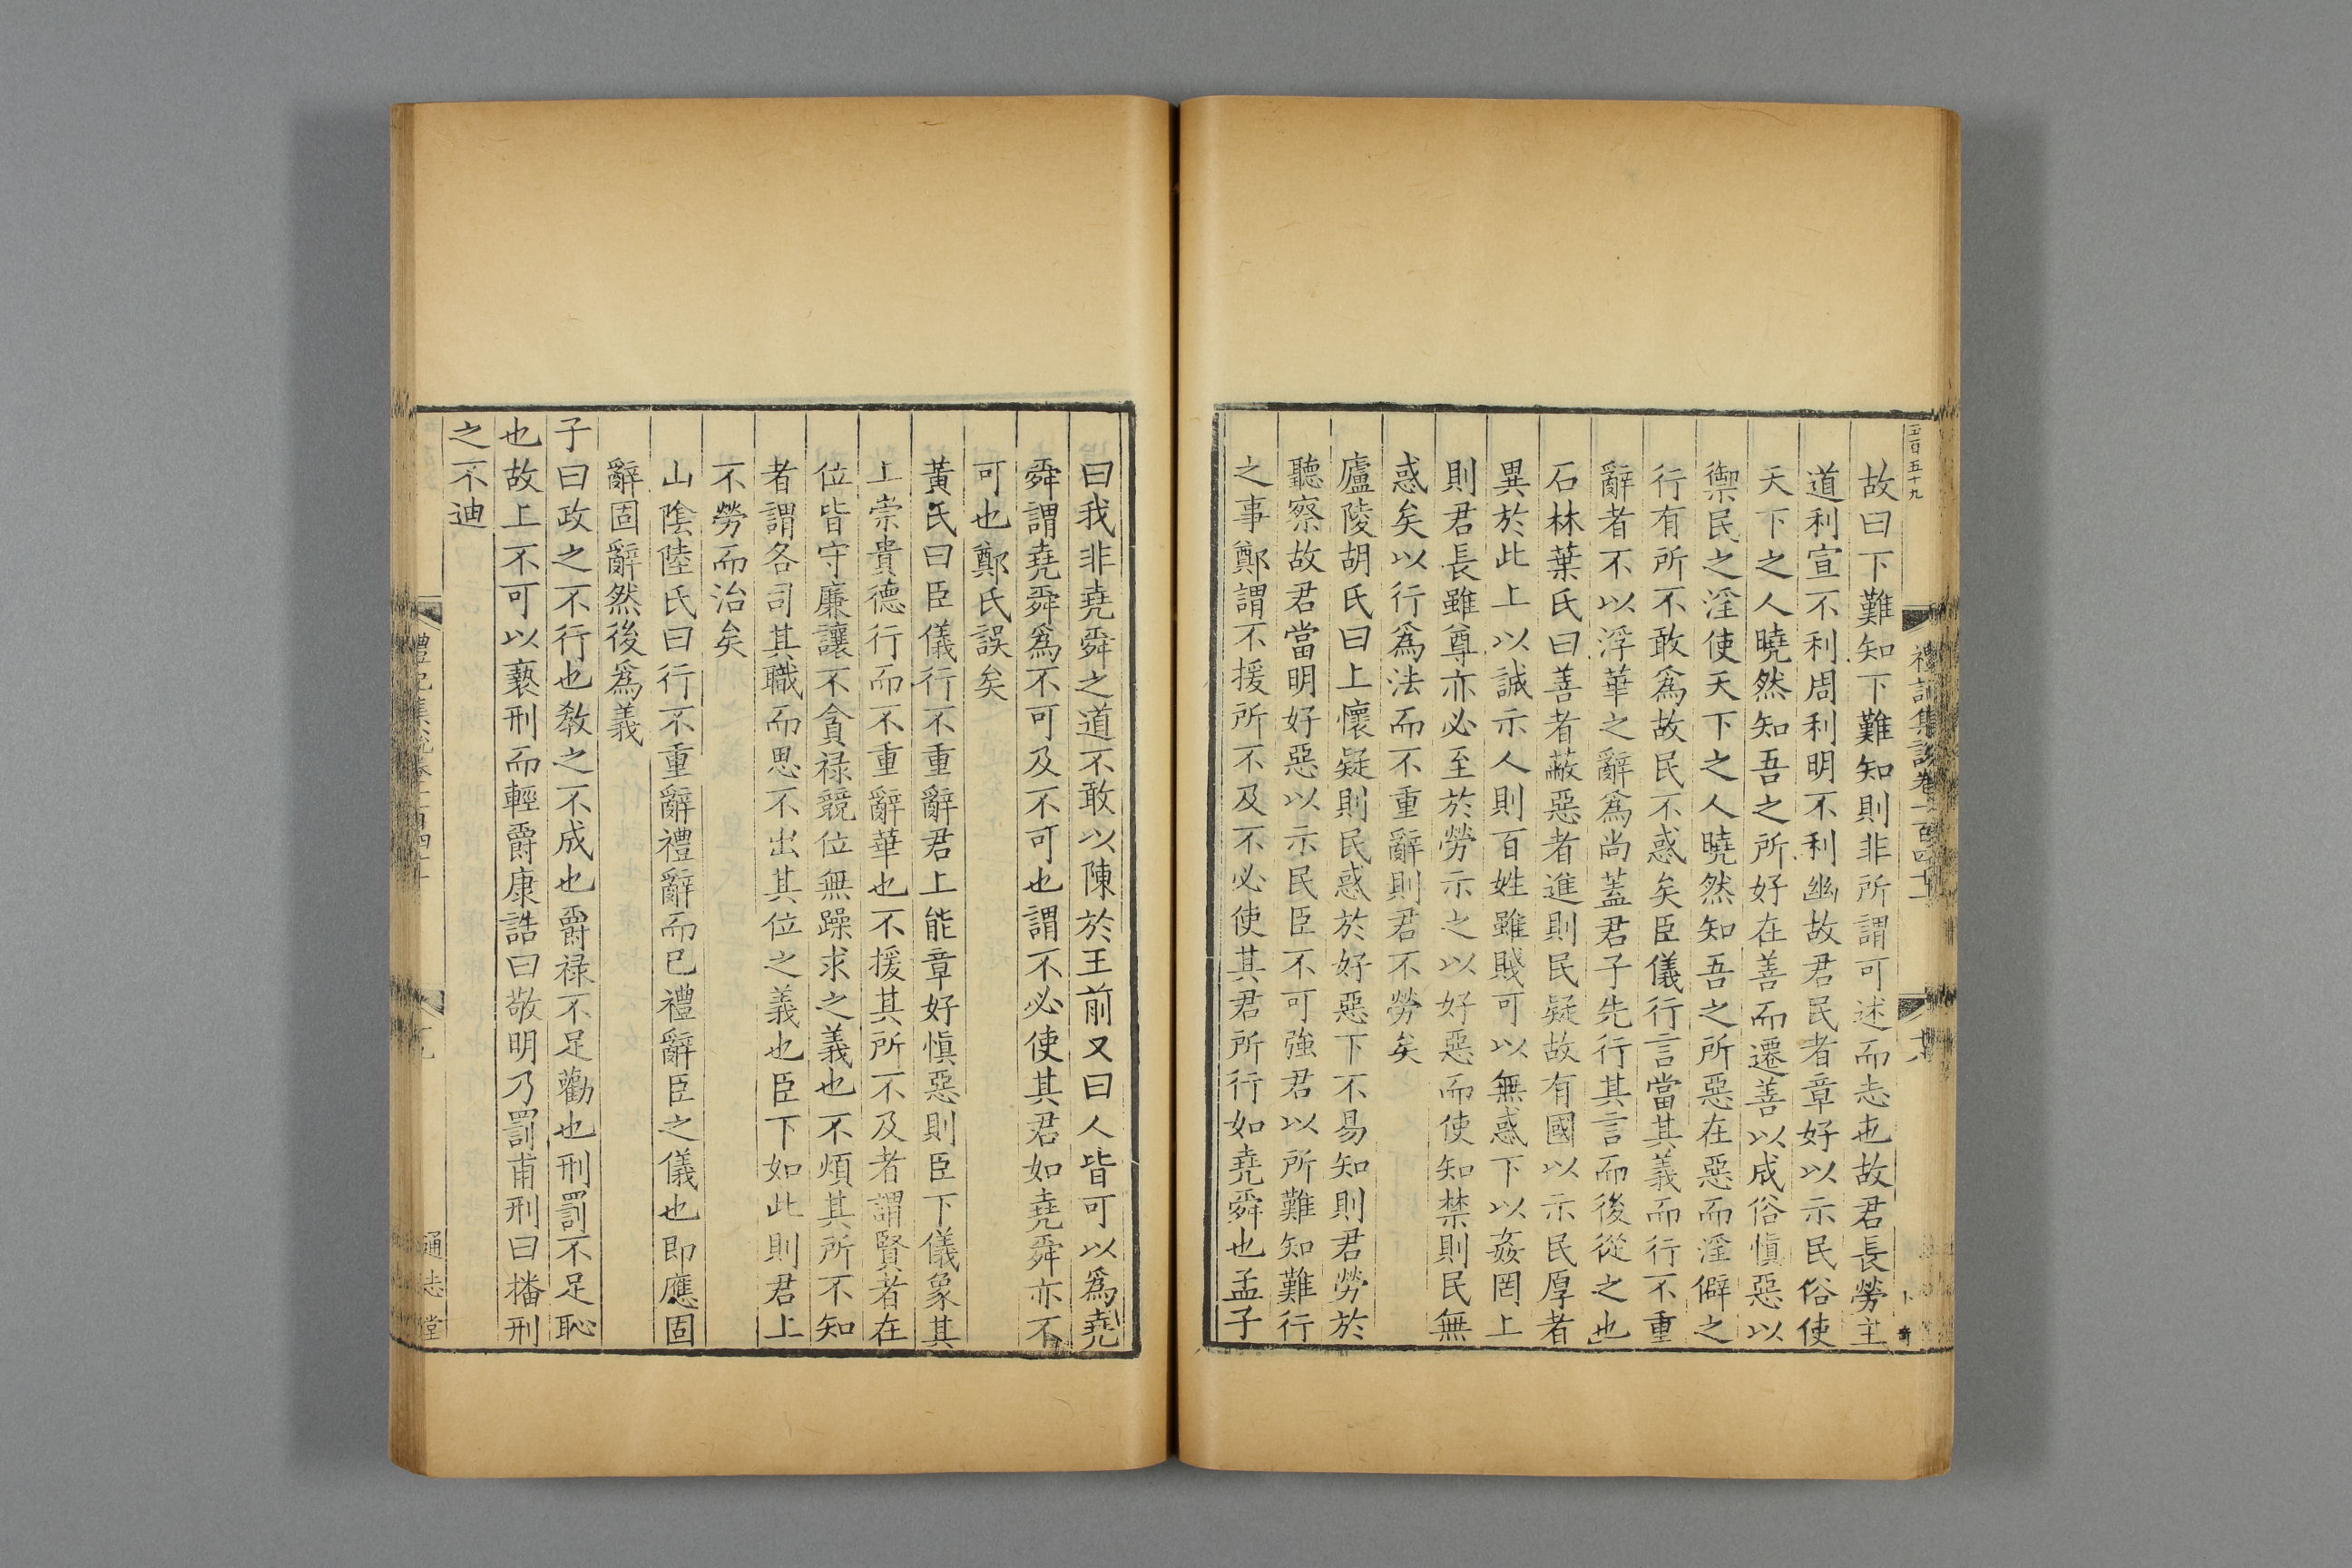 五百五十九
禮記集說卷一百四十
十八
故曰下難知下難知則非所謂可述而志也故君長勞主
道利宣不利周利明不利幽故君民者章好以示民俗使
天下之人曉然知吾之所好在善而遷善以成俗慎惡以
禦民之淫使天下之人曉然知吾之所惡在惡而淫僻之
行有所不敢爲故民不惑矣臣儀行言當其義而行不重
辭者不以浮華之辭爲尚蓋君子先行其言而後從之也
石林葉氏曰善者蔽惡者進則民疑故有國以示民厚者
異於此上以誠示人則百姓雖賤可以無惑下以姦罔上
則君長雖尊亦必至於勞示之以好惡而使知禁則民無
惑矣以行爲法而不重辭則君不勞矣
廬陵胡氏曰上懷疑則民惑於好惡下不易知則君勞於
聽察故君當明好惡以示民臣不可強君以所難知難行
之事鄭謂不援所不及不必使其君所行如堯舜也孟子
曰我非堯舜之道不敢以陳於王前又曰人皆可以爲堯
舜謂堯舜爲不可及不可也謂不必使其君如堯舜亦不
可也鄭氏誤矣
黃氏曰臣儀行不重辭君上能章好愼惡則臣下儀象其
上崇貴德行而不重辭華也不援其所不及者謂賢者在
位皆守廉讓不貪祿競位無躁求之義也不煩其所不知
者謂各司其職而思不出其位之義也臣下如此則君上
不勞而治矣
山陰陸氏曰行不重辭禮辭而已禮辭臣之儀也即應固
辭固辭然後爲義
子曰政之不行也敎之不成也爵祿不足勸也刑罰不足恥
也故上不可以褻刑而輕爵康誥曰敬明乃罰甫刑曰播刑
之不迪
禮記集說卷一百四十
通志堂